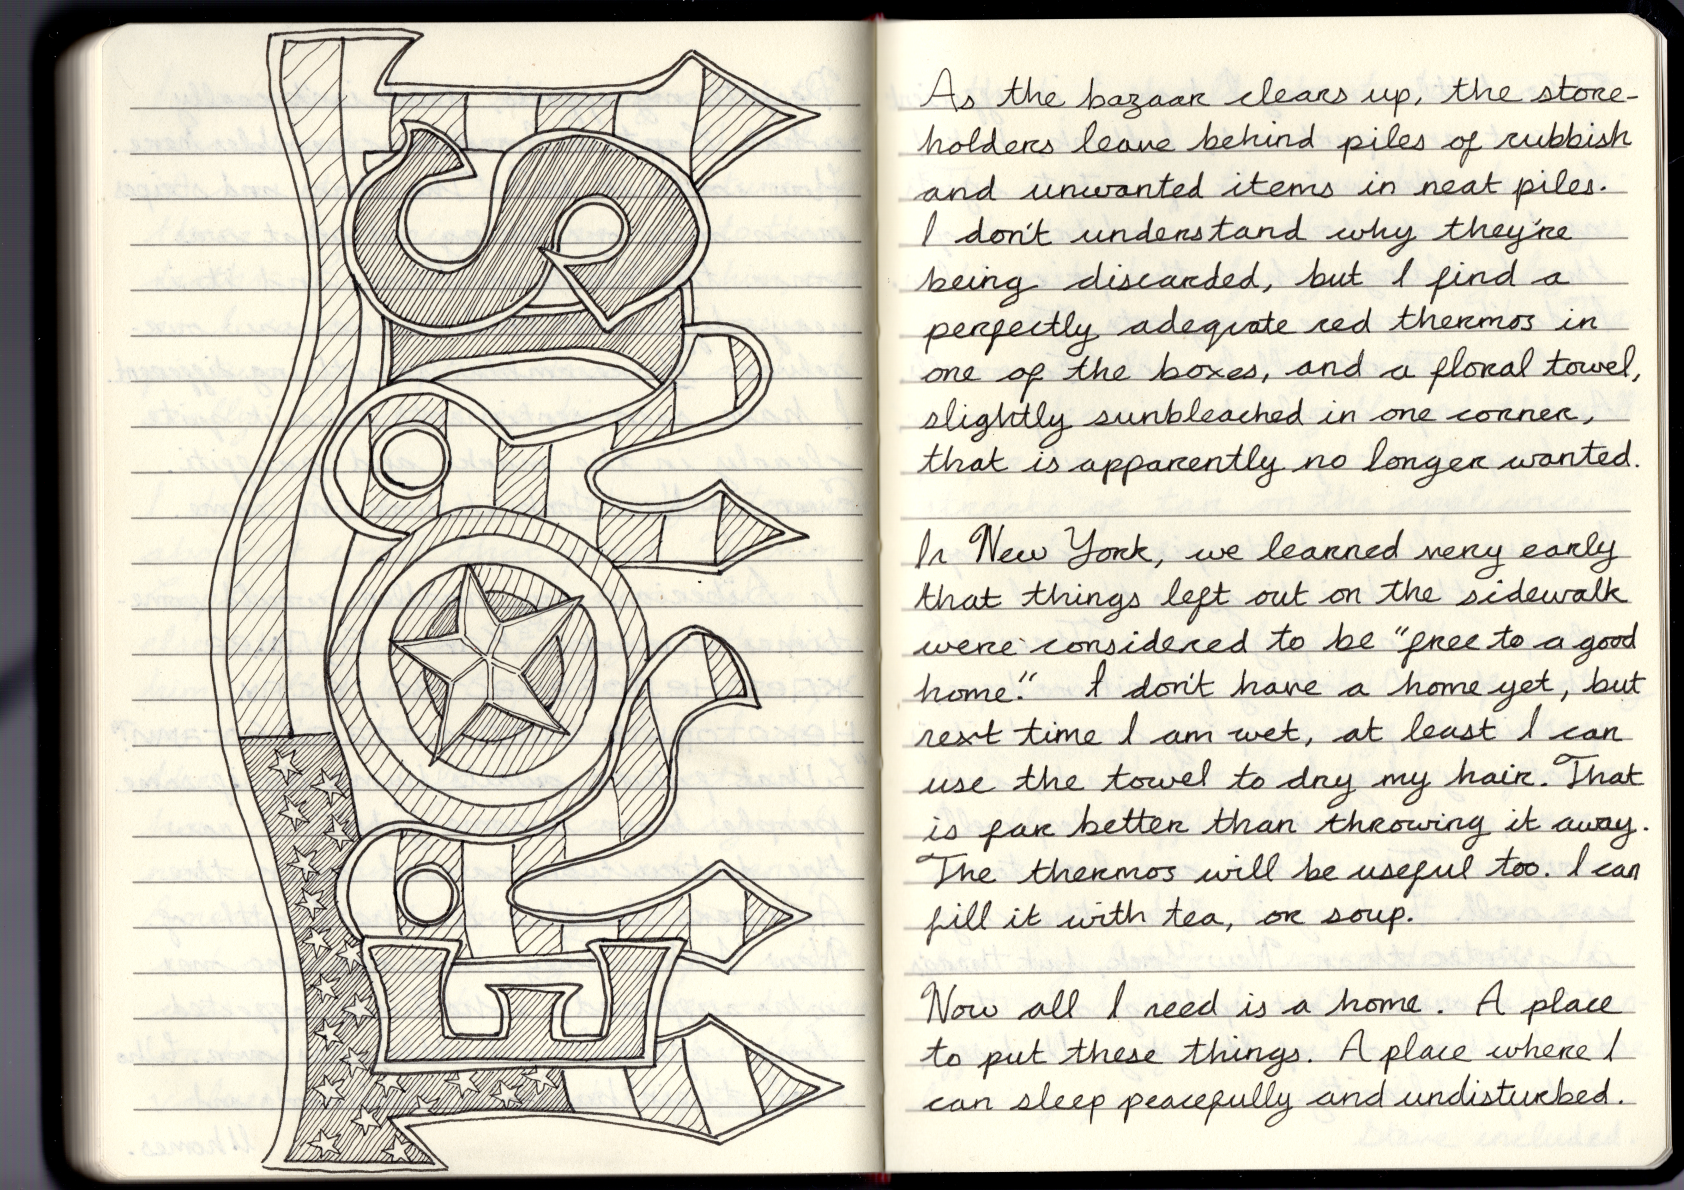 As the bazaar clears up, the store-
holders leave behind piles of rubbish
and unwanted items in neat piles.
I don't understand why they're
being discarded, but I find a
perfectly adequate red thermos in
one of the boxes, and a floral towel,
slightly sunbleached in one corner,
that is apparently no longer wanted.
In New York, we learned very early
that things left out on the sidewalk
were considered to be "free to a good
home." I don't have a home yet, but
next time I am wet, at least I can
use the towel to dry my hair. That
is far better than throwing it away.
The thermos will be useful too. I can
fill it with tea, or soup.
Now all I need is a home. A place
to put these things. A place where I
can sleep peacefully and undisturbed.